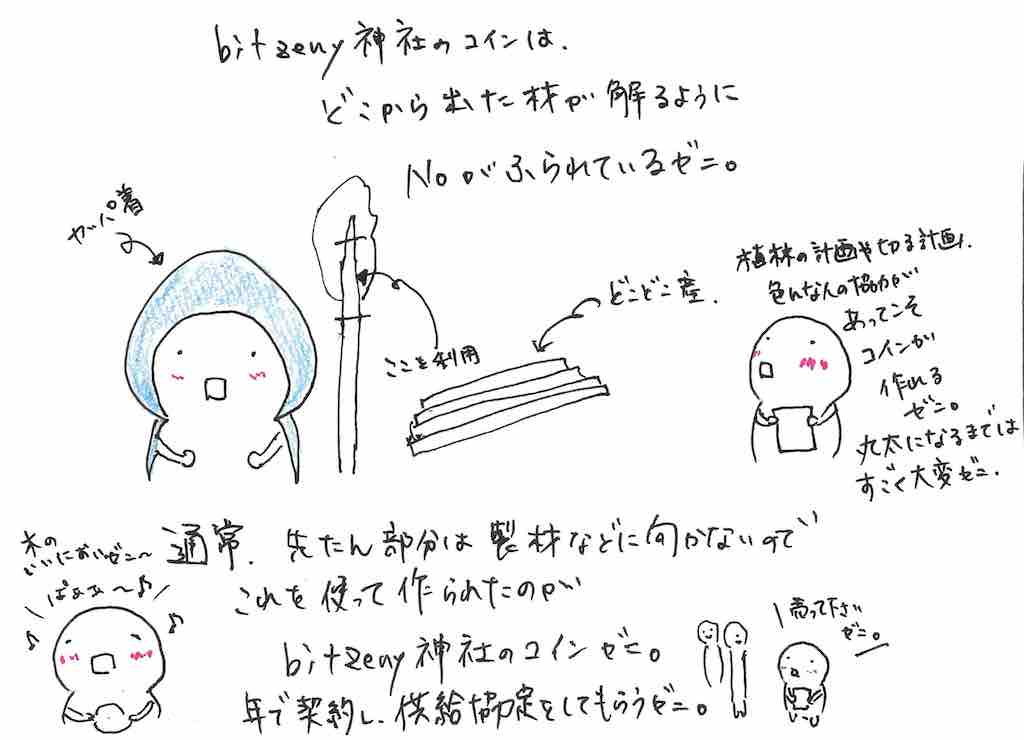 bitzeny神社のコインは、
どこから出た材が解るように
Noがふられているゼニ。
カッパ着
ここを利用
どこどこ産、
植林の計画や切る計画、
色んな人の協力が
あってこそ
コインが
作れる
ゼニ。
丸太になるまでは
すごく大変ゼニ、
木の
いいにおいゼニ〜
ぱぁぁ〜♪
通常、先たん部分は製材などに向かないので
これを使って作られたのが
bitzeny神社のコインゼニ。
年で契約し、供給協定をしてもらうゼニ。
売って下さい
ゼニ。